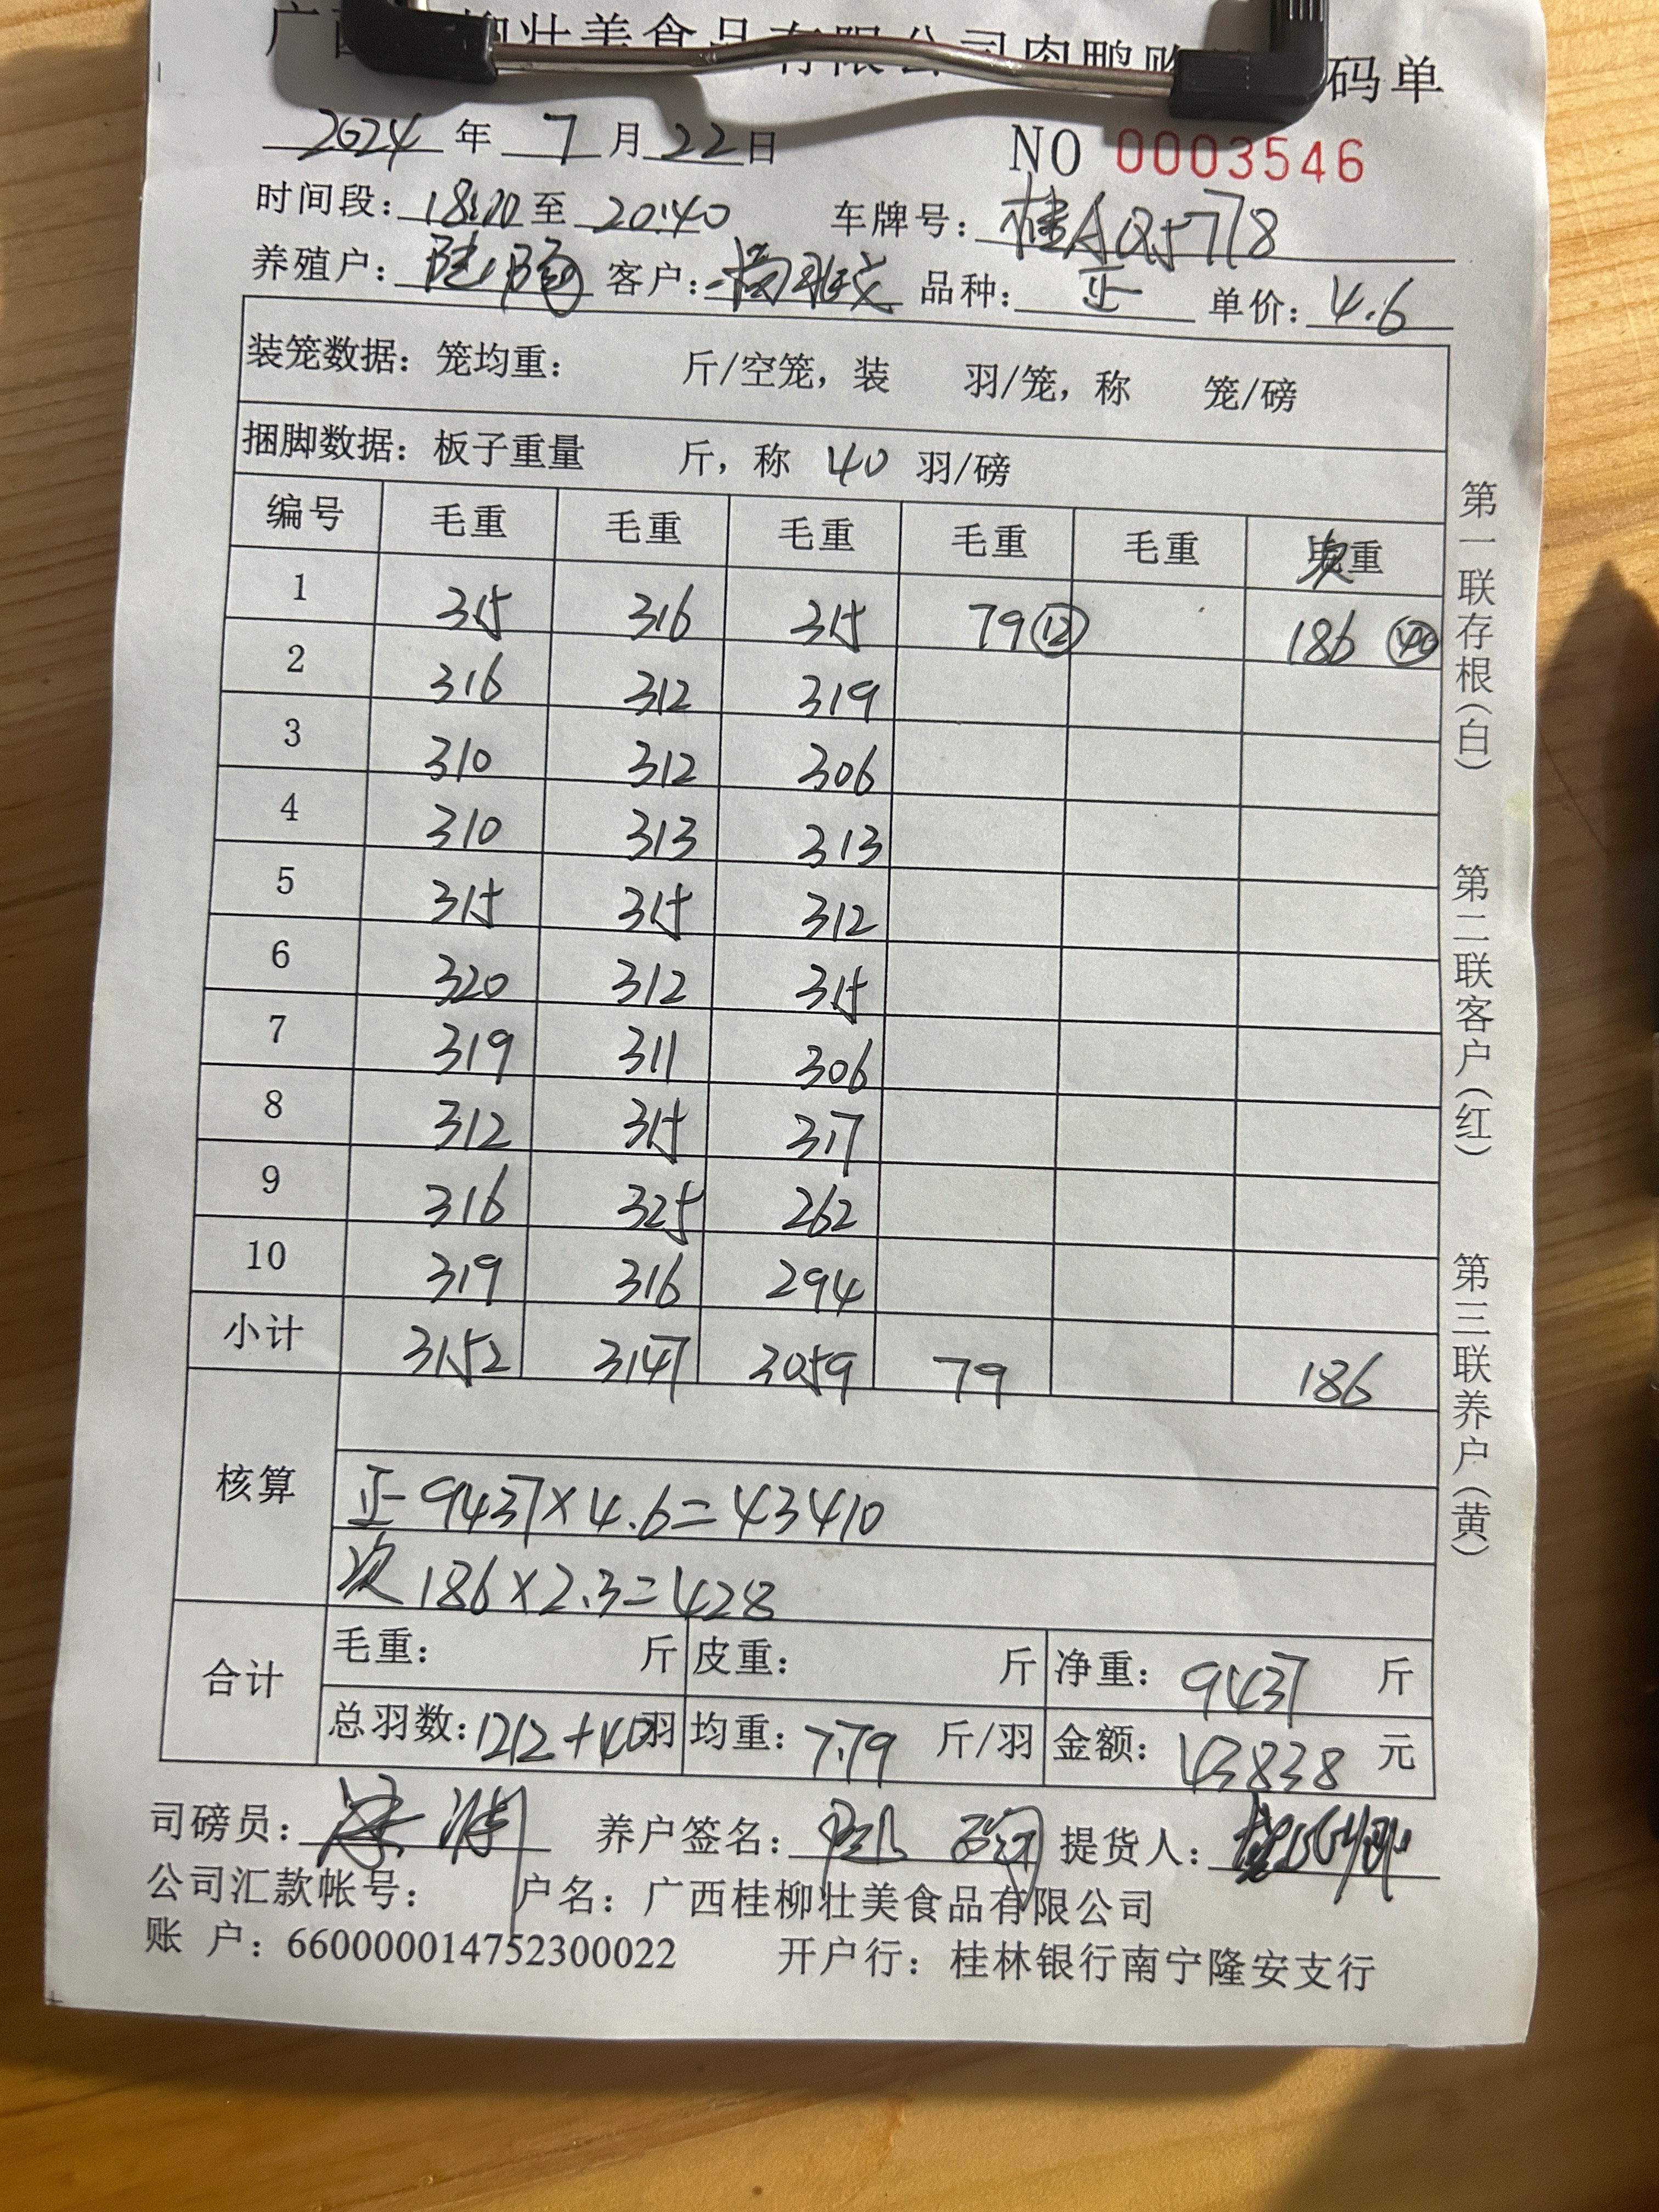 柳壮美食品有限公司肉鸭 码单
2024 年 7 月 22 日 NO 0003546
时间段: 至 20:40 车牌号: 桂A Q5778
养殖户: 客户: 品种: 正 单价: 4.6
装笼数据: 笼均重: 斤/空笼, 装 羽/笼, 称 笼/磅
捆脚数据: 板子重量 斤, 称 40 羽/磅
编号 毛重 毛重 毛重 毛重 毛重 次重
1 315 316 315 79 ⑫ 186 ㊵
2 316 312 319
3 310 312 306
4 310 313 313
5 315 315 312
6 320 312 315
7 319 311 306
8 312 315 317
9 316 325 262
10 319 316 294
小计 3152 3147 3059 79 186
核算
正 9437×4.6=43410
次 186×2.3=428
合计 毛重: 斤 皮重: 斤 净重: 9437 斤
总羽数: 1212+40 羽 均重: 7.79 斤/羽 金额: 43838 元
司磅员: 养户签名: 提货人:
公司汇款帐号: 户名: 广西桂柳壮美食品有限公司
账 户: 660000014752300022 开户行: 桂林银行南宁隆安支行
第一联存根(白) 第二联客户(红) 第三联养户(黄)